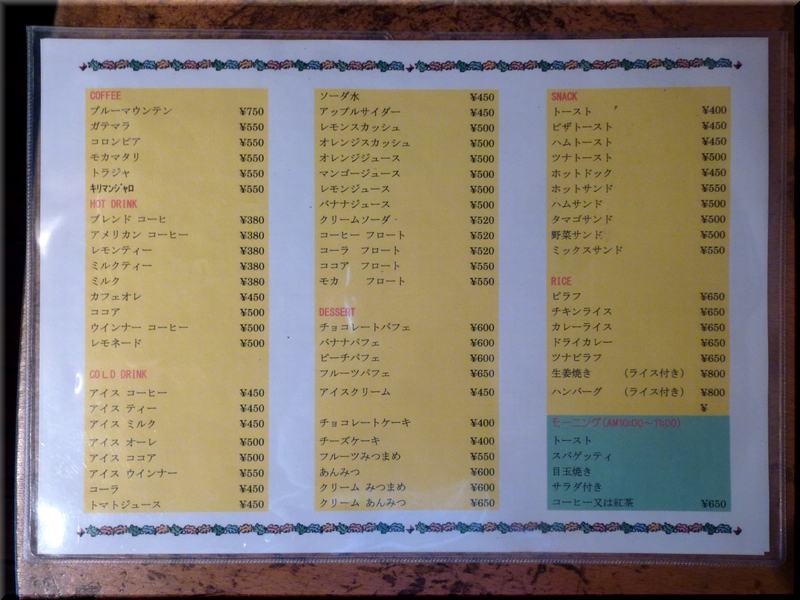 COFFEE
ブルーマウンテン ¥750
ガテマラ ¥550
コロンビア ¥550
モカマタリ ¥550
トラジャ ¥550
ｷﾘﾏﾝｼﾞｬﾛ ¥550
HOT DRINK
ブレンド コーヒ ¥380
アメリカン コーヒー ¥380
レモンティー ¥380
ミルクティー ¥380
ミルク ¥380
カフェオレ ¥450
ココア ¥500
ウインナー コーヒー ¥500
レモネード ¥500
COLD DRINK
アイス コーヒー ¥450
アイス ティー ¥450
アイス ミルク ¥450
アイス オーレ ¥500
アイス ココア ¥500
アイス ウインナー ¥550
コーラ ¥450
トマトジュース ¥450
ソーダ水 ¥450
アップルサイダー ¥450
レモンスカッシュ ¥500
オレンジスカッシュ ¥500
オレンジジュース ¥500
マンゴージュース ¥500
レモンジュース ¥500
バナナジュース ¥500
クリームソーダ ¥520
コーヒー フロート ¥520
コーラ フロート ¥520
ココア フロート ¥550
モカ フロート ¥550
DESSERT
チョコレートパフェ ¥600
バナナパフェ ¥600
ピーチパフェ ¥600
フルーツパフェ ¥650
アイスクリーム ¥450
チョコレートケーキ ¥400
チーズケーキ ¥400
フルーツみつまめ ¥550
あんみつ ¥600
クリーム みつまめ ¥600
クリーム あんみつ ¥650
SNACK
トースト ¥400
ピザトースト ¥450
ハムトースト ¥450
ツナトースト ¥500
ホットドック ¥450
ホットサンド ¥550
ハムサンド ¥500
タマゴサンド ¥500
野菜サンド ¥500
ミックスサンド ¥550
RICE
ピラフ ¥650
チキンライス ¥650
カレーライス ¥650
ドライカレー ¥650
ツナピラフ ¥650
生姜焼き (ライス付き) ¥800
ハンバーグ (ライス付き) ¥800
¥
モーニング(AM10:00～11:00)
トースト
スパゲッティ
目玉焼き
サラダ付き
コーヒー又は紅茶 ¥650